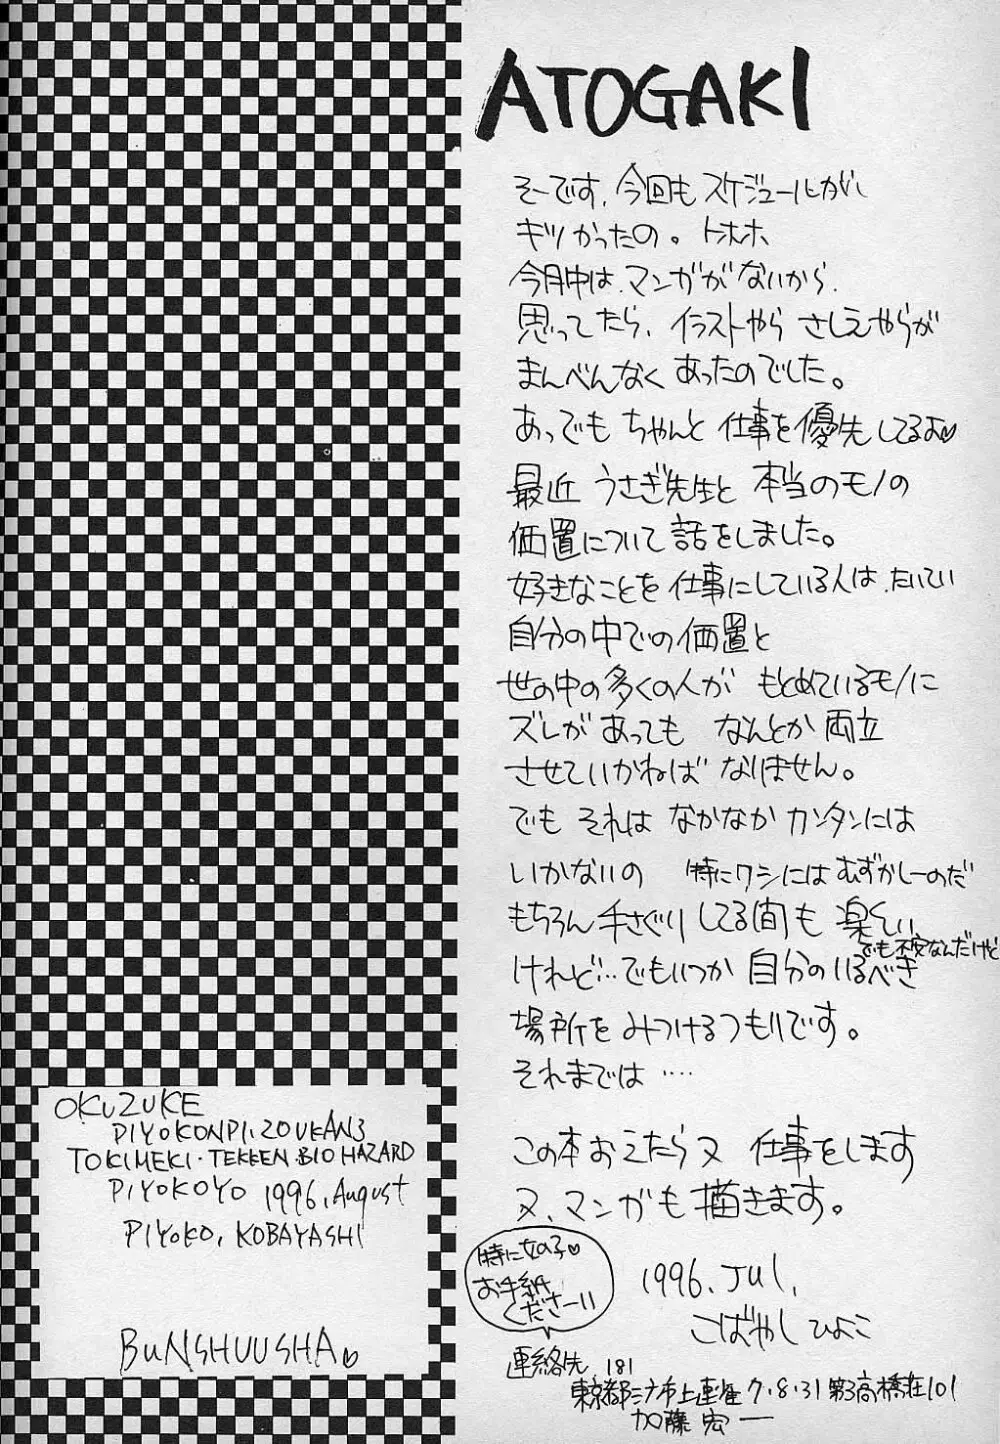 ATOGAKI
そーです、今回も スケジュールが
キツかったの。トホホ
今月中は、マンガがないから、
思ってたら、イラストやら さしえやらが
まんべんなく あったのでした。
あっでも ちゃんと 仕事を優先してるよ♡
最近 うさぎ先生と 本当のモノの
価置について 話をしました。
好きなことを 仕事にしている人は、たいてい
自分の中での価置と
世の中の多くの人が もとめているモノに
ズレがあっても なんとか 両立
させていかねば なりません。
でも それは なかなか カンタンには
いかないの 特にワシには むずかしーのだ
もちろん 手さぐりしてる間も 楽しい
でも不安なんだけど
けれど…でもいつか 自分のいるべき
場所を みつけるつもりです。
それまでは ‥‥
この本おえたら又 仕事をします
又、マンガも 描きます。
特に女の子♡
お手紙
くださーい
1996. Jul,
こばやし ひよこ
連絡先 181
東京都三鷹市上連雀 7・8・31 第3高橋荘101
加藤 宏一
OKUZUKE
PIYOKONPI. ZOUKAN3
TOKIMEKI・TEKKEN・BIO HAZARD
PIYOKOYO 1996, August
PIYOKO, KOBAYASHI
BUNSHUUSHA♡